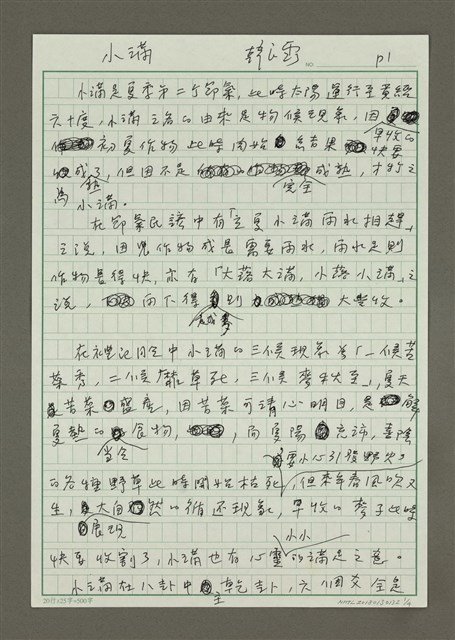 小滿 韓良露 NO P1
小滿是夏季第二个節氣，此時太陽運行至黃經
六十度，小滿之名的由來是物候現象，因
初夏作物此時開始結果 早收的
快要
成了，但因不是 成熟，才称之
熟 完全
為小滿。
在節氣民諺中有「立夏小滿雨水相趕」
之說，因児作物成長需要雨水，雨水足則
作物長得快，亦有「大落大滿，小落小滿」之
說，雨下得 則 大豐收。
在禮記月令中小滿的三候現象為「一候苦
菜秀，二候靡草死，三候麥秋至」，夏天
苦菜盛產，因苦菜可清心明目，是 解
夏熱的 食物， 而夏陽充沛，喜陰
當令 要小心引發野火
的各種野草此時開始枯死，但來年春風吹又
生，大自然的循还現象，早收的麥子此時
展現
快要收割了，小滿也有心靈的滿足之意。
小小
小滿在八卦中 乾卦，六個爻全是
主
20行×25字=500字